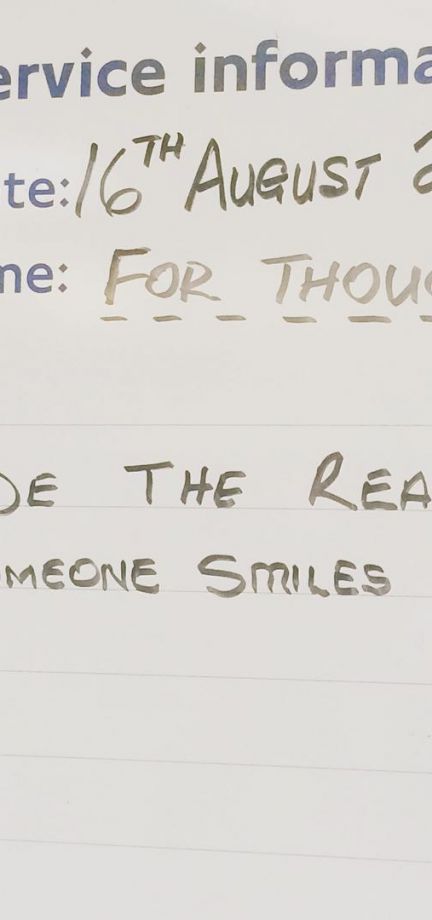 ervice informa
te: 16TH AUGUST 2
me: FOR THOU
DE THE REA
OMEONE SMILES